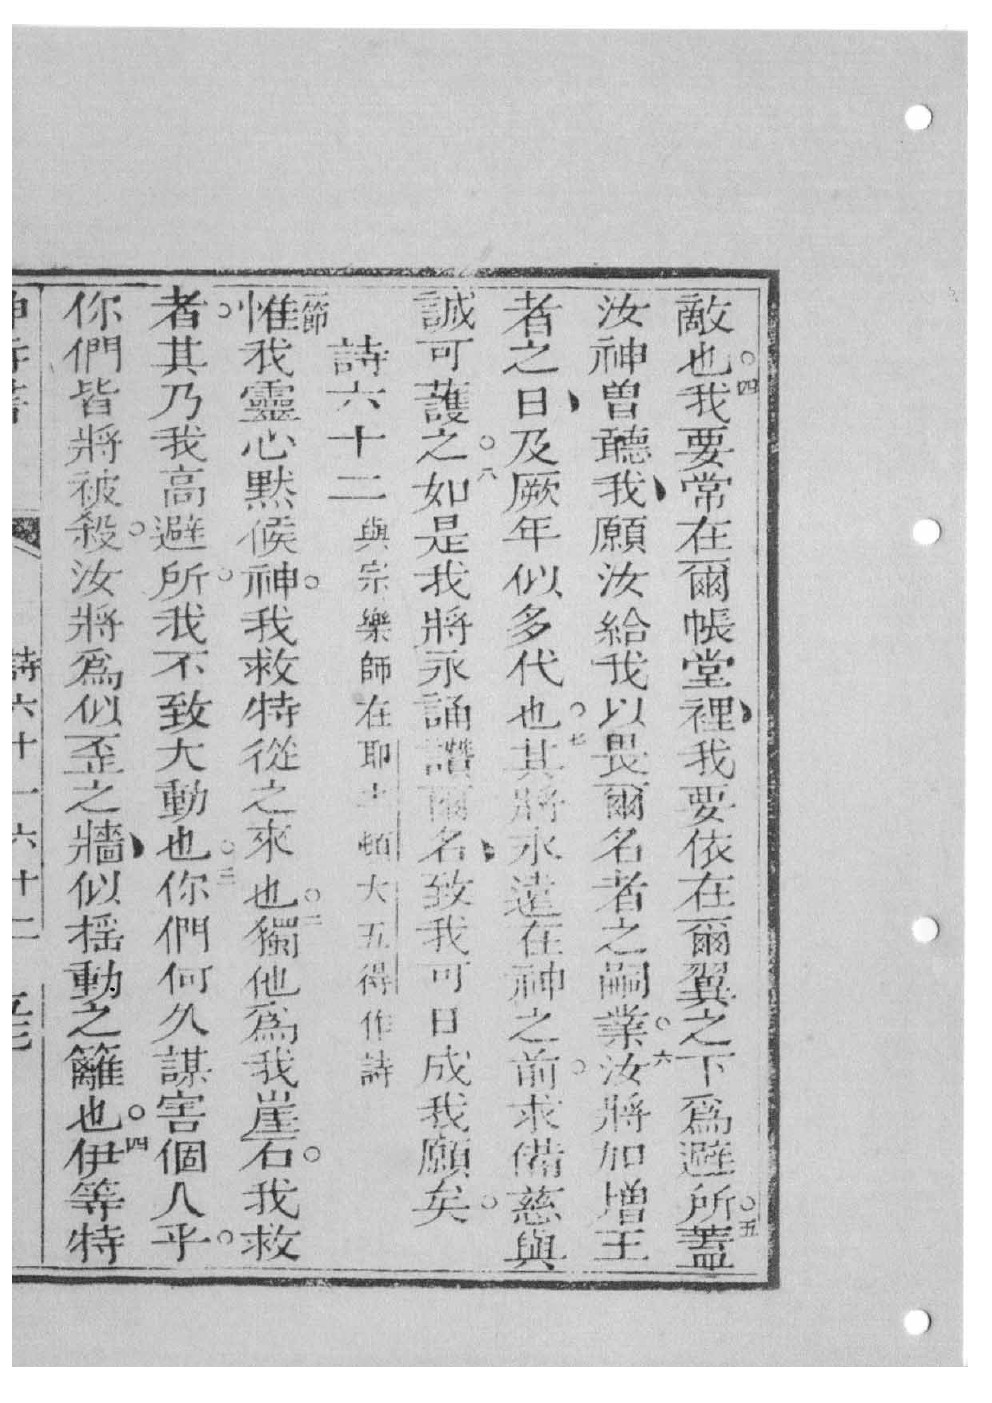 敵也。四我要常在爾帳堂裡、我要依在爾翼之下為避所。五蓋
汝神曾聽我、願汝給我以畏爾名者之嗣業。六汝將加增王
者之日、及厥年似多代也。七其將永遠在神之前。求備慈與
誠可護之。八如是我將永誦讚爾名、致我可日成我願矣。
詩六十二 與宗樂師在耶土頓大五得作詩
一節惟我靈心默候神。我救特從之來也。二獨他為我崖石。我救
者。其乃我高避所。我不致大動也。三你們何久謀害個人乎。
你們皆將被殺。汝將為似歪之牆、似搖動之籬也。四伊等特
詩六十一 六十二